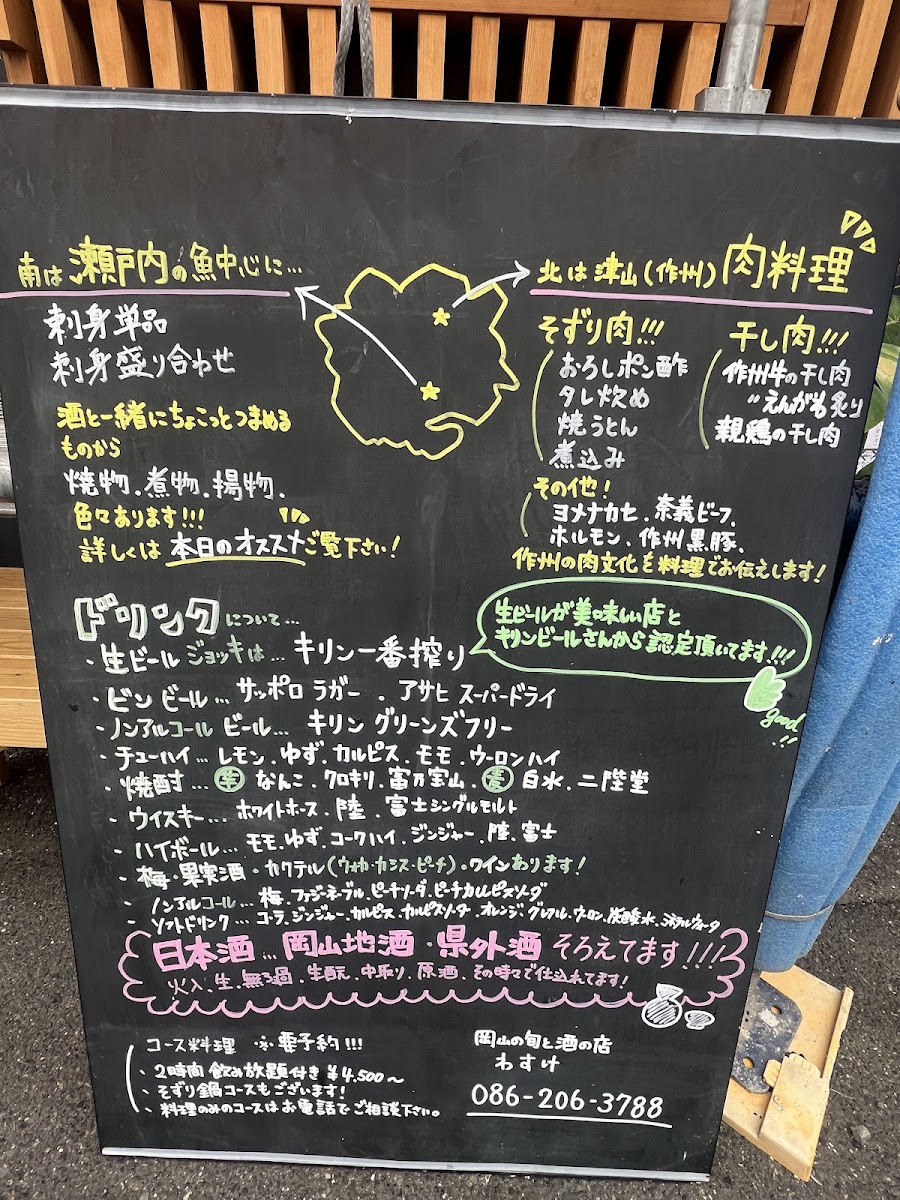 南は瀬戸内の魚中心に…
刺身単品
刺身盛り合わせ
酒と一緒にちょこっとつまめる
ものから
焼物.煮物.揚物.
色々あります!!!
詳しくは本日のオススメご覧下さい!
北は津山(作州)肉料理
そずり肉!!!
おろしポン酢
タレ炒め
焼うどん
煮込み
干し肉!!!
作州牛の干し肉
〃えんがも炙り
親鶏の干し肉
その他!
ヨメナカセ.奈義ビーフ.
ホルモン.作州黒豚.
作州の肉文化を料理でお伝えします!
ドリンクについて…
・生ビールジョッキは…キリン一番搾り
生ビールが美味しい店と
キリンビールさんから認定頂いてます!!!
good!!
・ビンビール…サッポロラガー.アサヒスーパードライ
・ノンアルコールビール…キリングリーンズフリー
・チューハイ…レモン.ゆず.カルピス.モモ.ウーロンハイ
・焼酎…芋なんこ.クロキリ.富乃宝山.麦白水.二階堂
・ウイスキー…ホワイトホース.陸.富士シングルモルト
・ハイボール…モモ.ゆず.コークハイ.ジンジャー.陸.富士
・梅・果実酒・カクテル(ウォカ・カシス・ピーチ)・ワインあります!
・ノンアルコール…梅.ファジーネーブル.ピーチソーダ.ピーチカルピスソーダ
・ソフトドリンク…コーラ.ジンジャー.カルピス.カルピスソーダ.オレンジ.グレフル.ウーロン.炭酸水.ミネラルウォータ
日本酒…岡山地酒・県外酒そろえてます!!!
火入.生.無ろ過.生酛.中取り.原酒.その時々で仕入れてます!
コース料理 ※要予約!!!
・2時間飲み放題付き¥4,500〜
・そずり鍋コースもございます!
・料理のみのコースはお電話でご相談下さい。
岡山の旬と酒の店
わすけ
086-206-3788